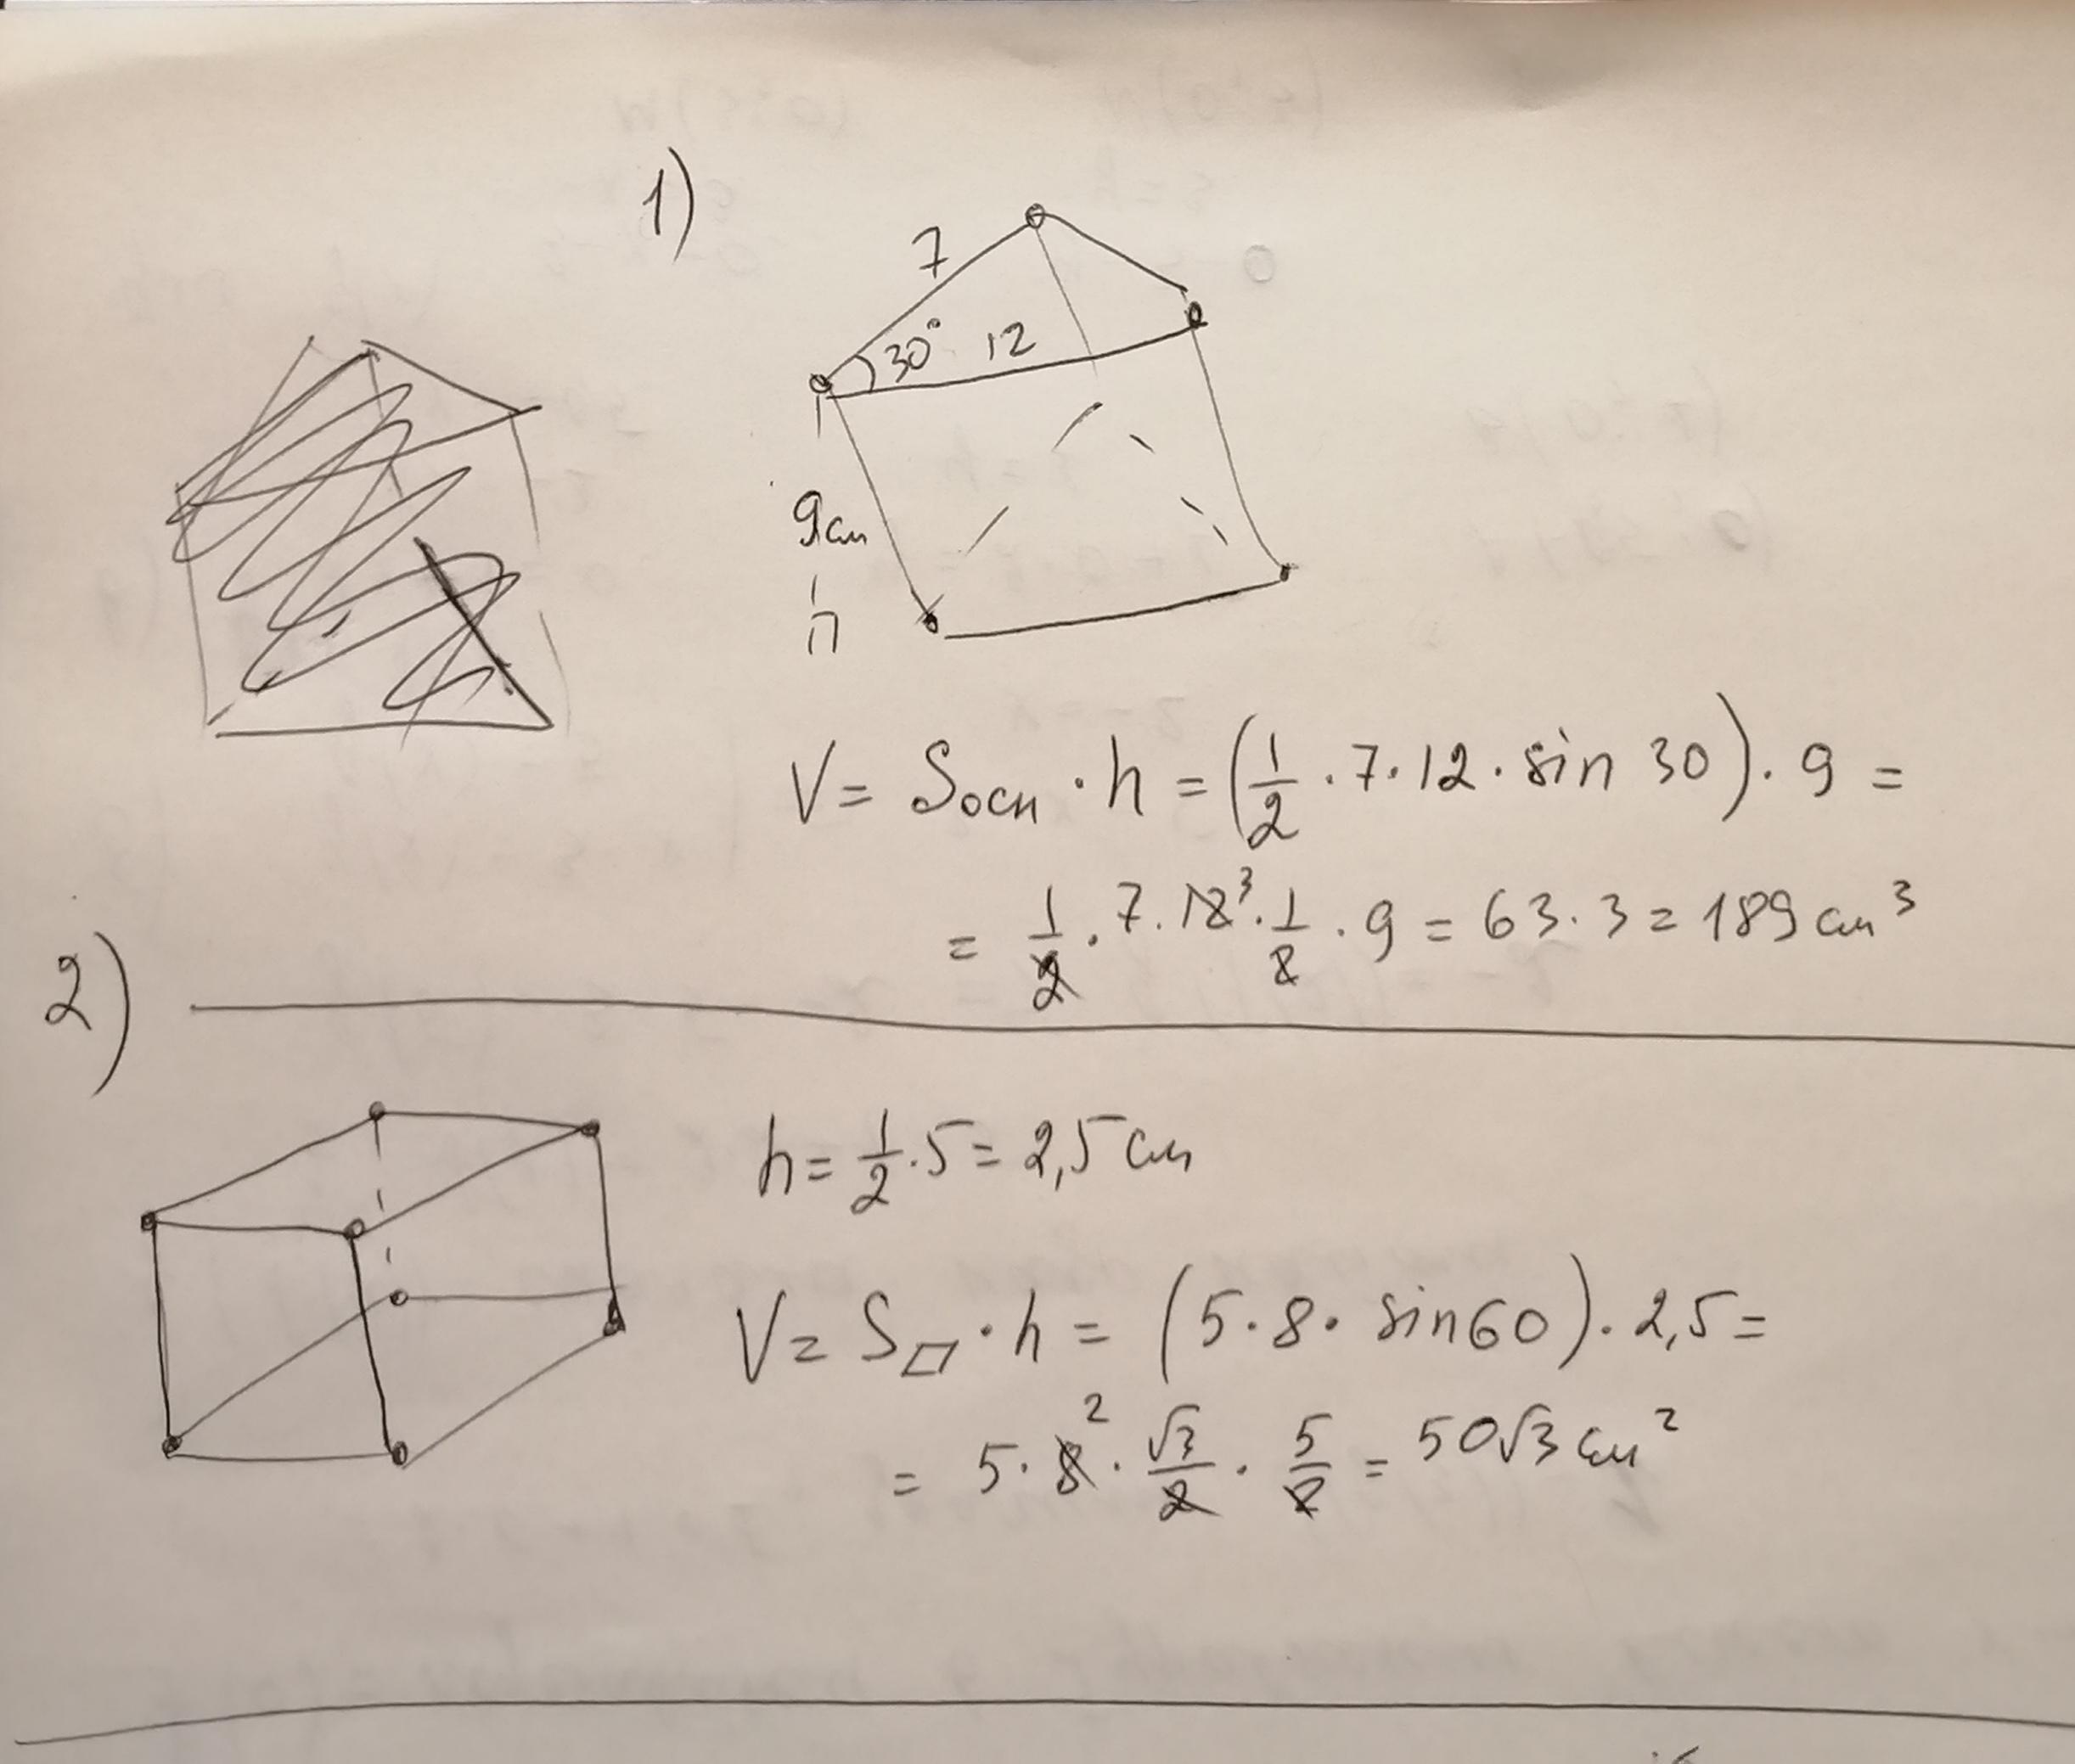 1)
7
30° 12
9см
h
V = Sосн · h = (1/2 · 7 · 12 · sin 30) · 9 =
= 1/2 · 7 · 12³ · 1/2 · 9 = 63 · 3 = 189 см³
2)
h = 1/2 · 5 = 2,5 см
V = S▱ · h = (5 · 8 · sin60) · 2,5 =
= 5 · 8² · √3/2 · 5/2 = 50√3 см²